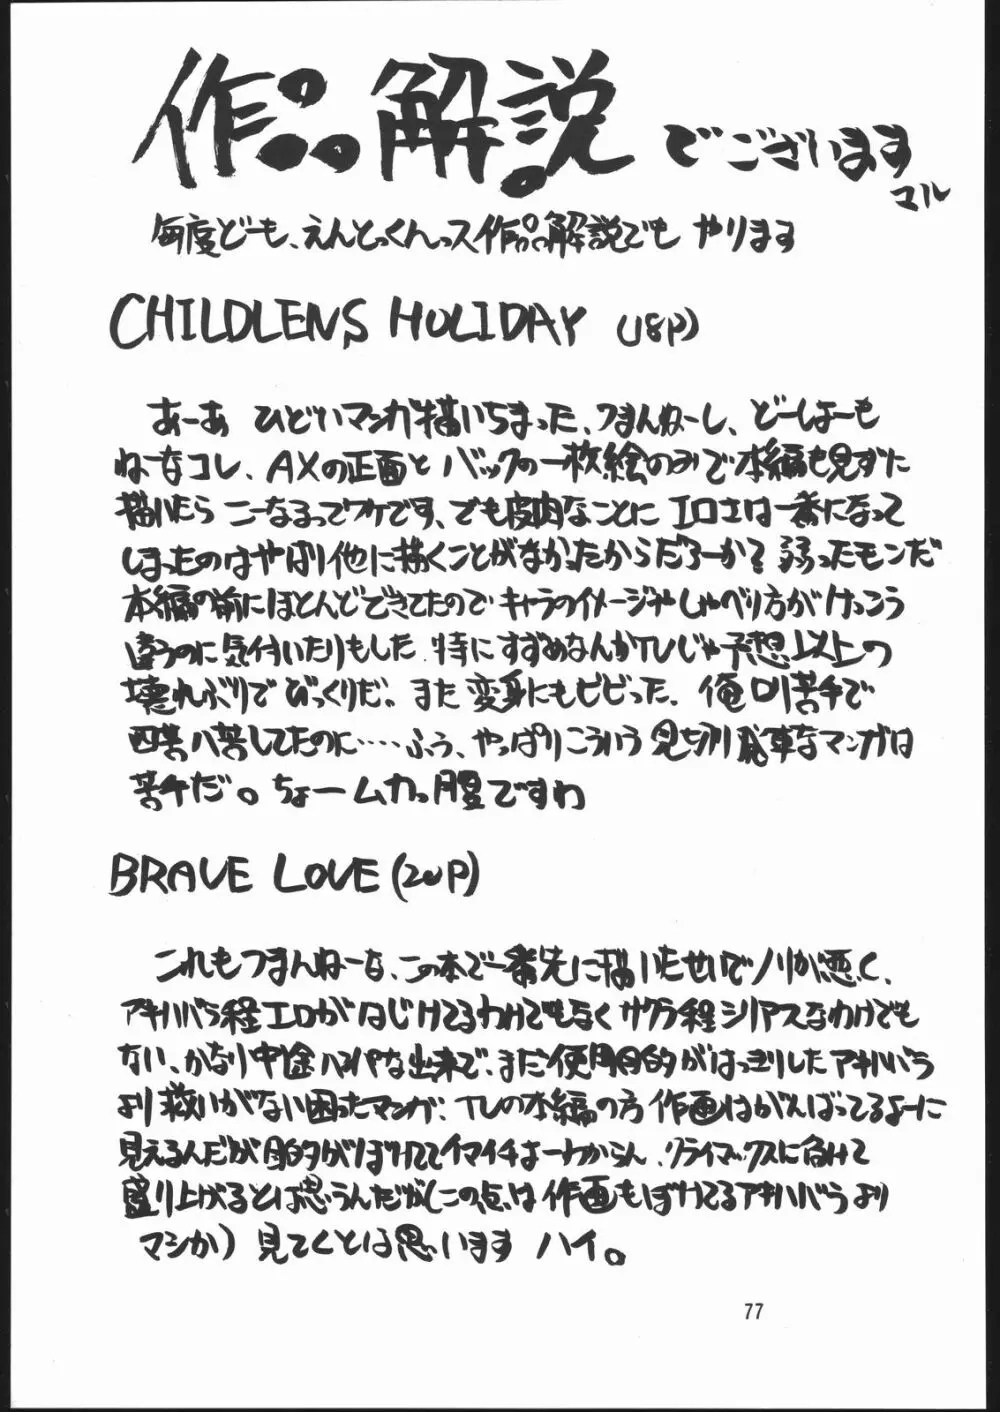 作品解説でございます
マル
毎度どーも、えんどっくんっス作品解説でも やります
CHILDLENS HOLIDAY (18P)
あーあ ひどいマンガ描いちまった、つまんねーし、どーしよーも
ねーなコレ、AXの正面とバックの一枚絵のみで本編も見ずに
描いたら こーなるってワケです、でも皮肉なことに エロさは一番になって
しまったのはやはり他に描くことがなかったからだろーか? 弱ったモンだ
本編の前にほとんどできてたのでキャラのイメージやしゃべり方がけっこう
違うのに気付いたりもした 特にすずめなんかTVじゃ予想以上の
壊れぶりでびっくりだ。また変身にもビビった。俺ロリ苦手で
四苦八苦してたのに……ふう、やっぱりこういう見切り発車なマンガは
苦手だ。ちょームカっ腹ですわ
BRAVE LOVE (20P)
これもつまんねーな、この本で一番先に描いたせいでノリが悪く、
アキハバラ程エロがはじけてるわけでもなくサクラ程シリアスなわけでも
ない、かなり中途ハンパな出来で、まだ使用目的がはっきりしたアキハバラ
より救いがない困ったマンガ、TVの本編の方 作画はがんばってるよーに
見えるんだが目的がぼけててイマイチよーわからん、クライマックスに向けて
盛り上げるとは思うんだが(この点は作画もぼけてるアキハバラより
マシか) 見てくとは思います ハイ。
77